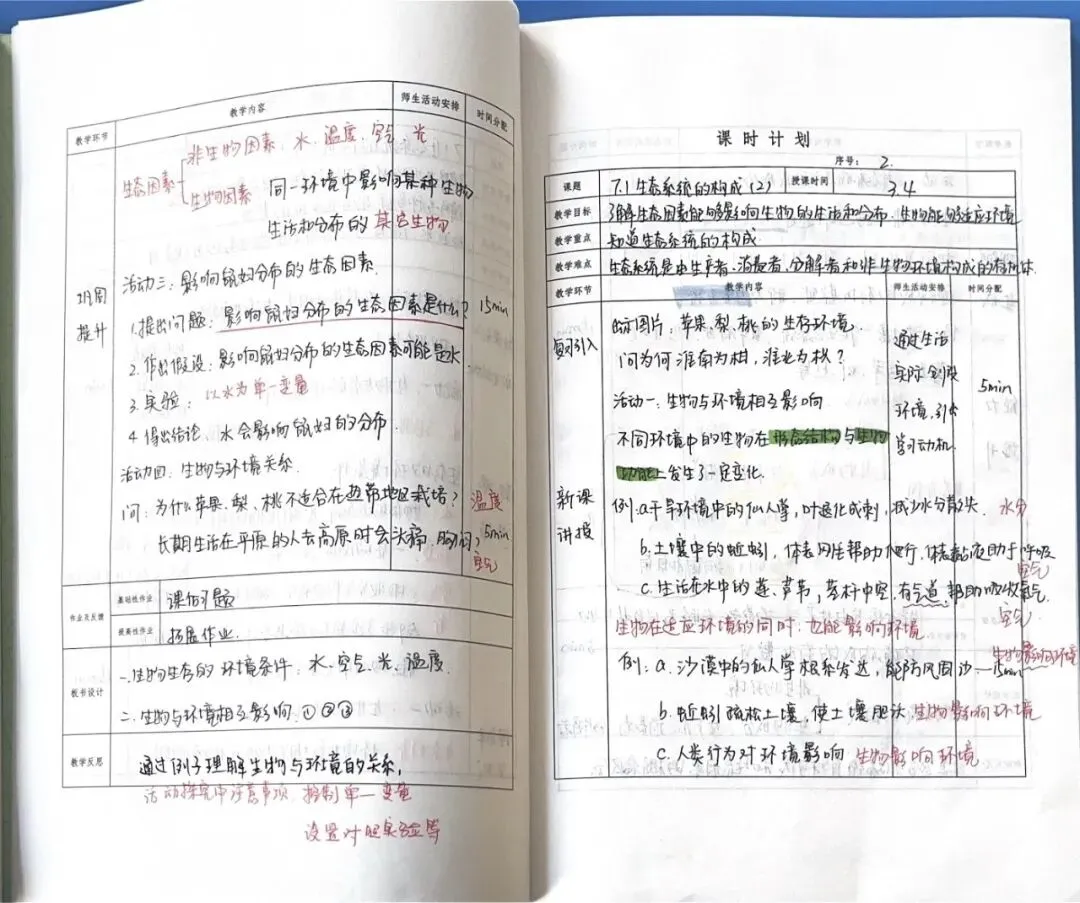 教学环节 教学内容 师生活动安排 时间分配
非生物因素：水、温度、空气、光
生态因素
生物因素 同一环境中影响某种生物
生活和分布的其它生物
活动三：影响鼠妇分布的生态因素.
巩固提升
1.提出问题：影响鼠妇分布的生态因素是什么？ 15min
2.作出假设：影响鼠妇分布的生态因素可能是水
3.实验： 以水为单一变量
4.得出结论 水会影响鼠妇的分布
活动四：生物与环境关系.
问：为什么苹果、梨、桃不适合在热带地区栽培？ 温度
长期生活在平原的人去高原时会头疼、胸闷？ 5min
空气
作业及反馈 基础性作业 课后习题
提高性作业 拓展作业.
板书设计
一.生物生态的环境条件：水、空气、光、温度.
二.生物与环境相互影响.①②③
教学反思 通过例子理解生物与环境的关系,
活动探究中注意事项 控制单一变量
设置对照实验等
课时计划
序号： 2.
课题 7.1生态系统的构成(2) 授课时间 3.4
教学目标 了解生态因素能够影响生物的生活和分布.生物能够适应环境
教学重点 知道生态系统的构成.
教学难点 生态系统是由生产者、消费者、分解者和非生物环境构成的有机体.
教学环节 教学内容 师生活动安排 时间分配
复习引入 出示图片：苹果、梨、桃的生存环境.
问为何淮南为柑，淮北为枳？
通过生活
实际创设
环境,引发
学习动机.
5min
新课讲授
活动一：生物与环境相互影响
不同环境中的生物在形态结构与生物
功能上发生了一定变化.
例：a.干旱环境中的仙人掌，叶退化成刺，减少水分散失. 水分
b.土壤中的蚯蚓，体表刚毛帮助爬行，体表黏液助于呼吸
空气
c.生活在水中的莲、芦苇，茎杆中空，有气道帮助吸收氧气.
空气
生物在适应环境的同时，也能影响环境
例：a.沙漠中的仙人掌根系发达，能防风固沙— 生物影响环境
15min
b.蚯蚓疏松土壤，使土壤肥沃 生物影响环境
c.人类行为对环境影响 生物影响环境